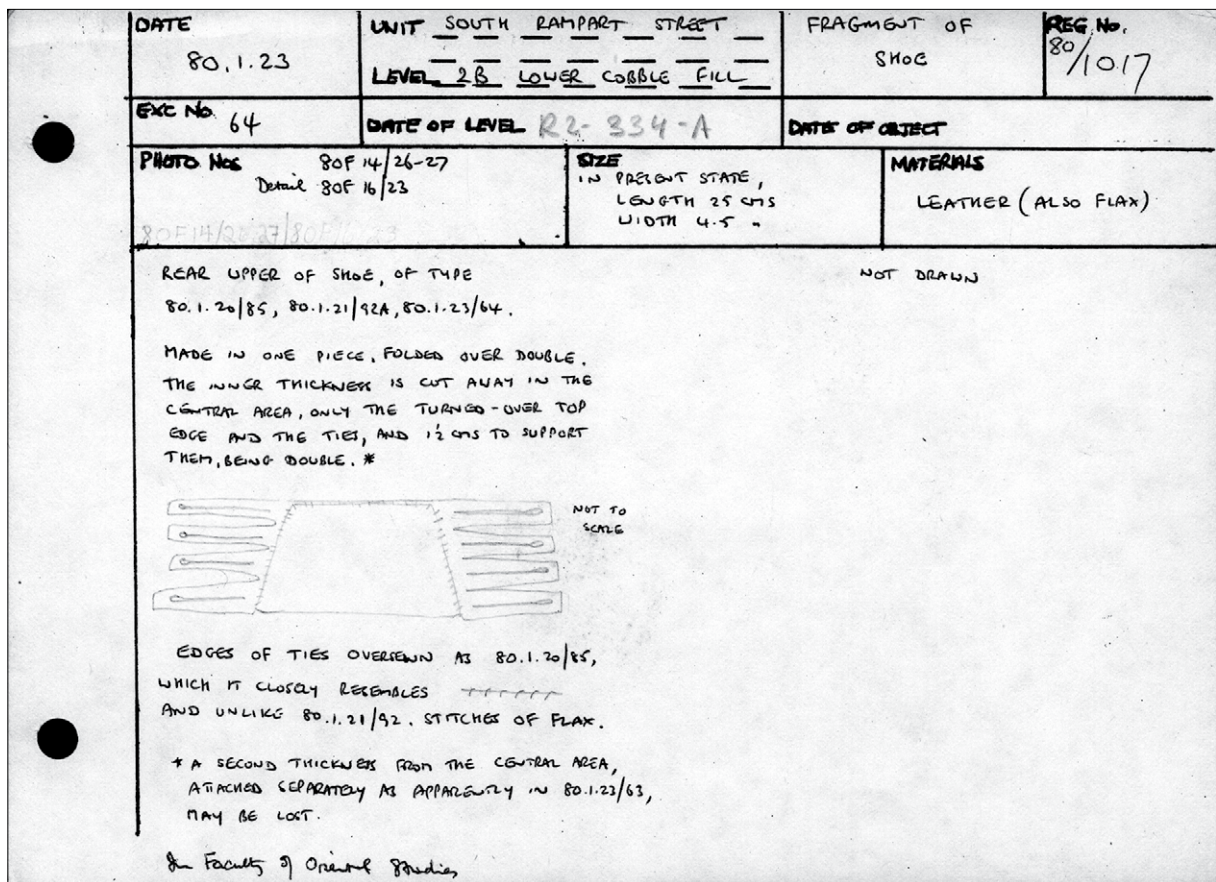 DATE
80.1.23
UNIT SOUTH RAMPART STREET
LEVEL 2B LOWER COBBLE FILL
FRAGMENT OF
SHOE
REG. No.
80/1017
EXC No. 64
DATE OF LEVEL R2-334-A
DATE OF OBJECT
PHOTO Nos 80F 14/26-27
Detail 80F 16/23
SIZE
IN PRESENT STATE,
LENGTH 25 CMS
WIDTH 4.5 "
MATERIALS
LEATHER (ALSO FLAX)
REAR UPPER OF SHOE, OF TYPE
80.1.20/85, 80.1.21/92A, 80.1.23/64.
MADE IN ONE PIECE, FOLDED OVER DOUBLE.
THE INNER THICKNESS IS CUT AWAY IN THE
CENTRAL AREA, ONLY THE TURNED-OVER TOP
EDGE AND THE TIES, AND 1½ CMS TO SUPPORT
THEM, BEING DOUBLE. *
NOT DRAWN
NOT TO
SCALE
EDGES OF TIES OVERSEWN AS 80.1.20/85,
WHICH IT CLOSELY RESEMBLES
AND UNLIKE 80.1.21/92. STITCHES OF FLAX.
* A SECOND THICKNESS FROM THE CENTRAL AREA,
ATTACHED SEPARATELY AS APPARENTLY IN 80.1.23/63,
MAY BE LOST.
In Faculty of Oriental Studies